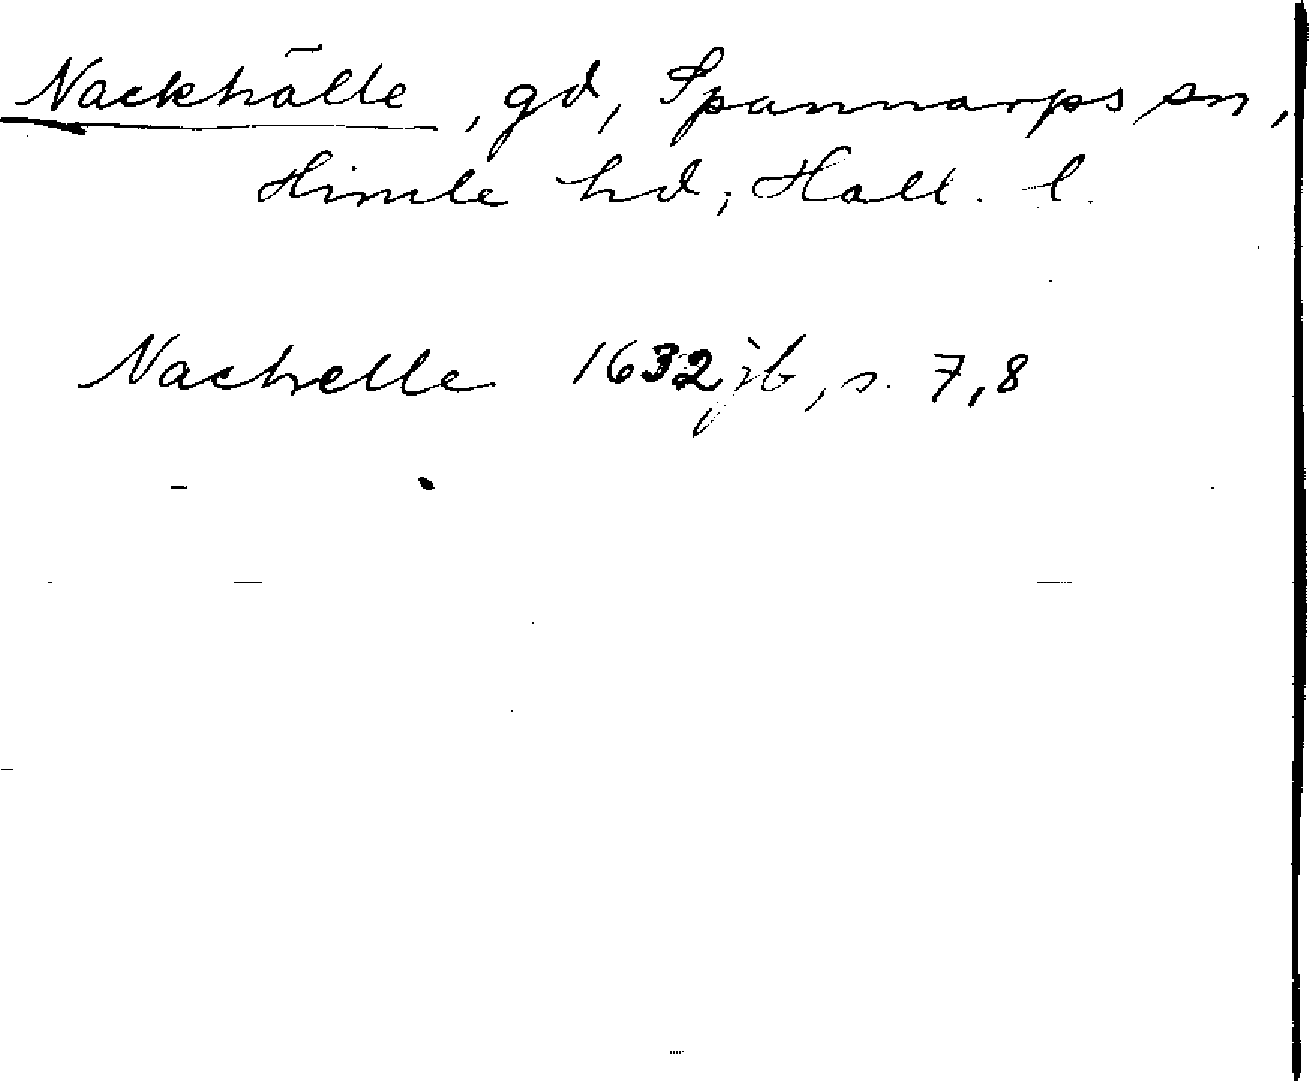 Nackhälle, gd, Spannarps sn,
Himle hd, Hall. l.
Nachelle 1632 jb, s. 7,8